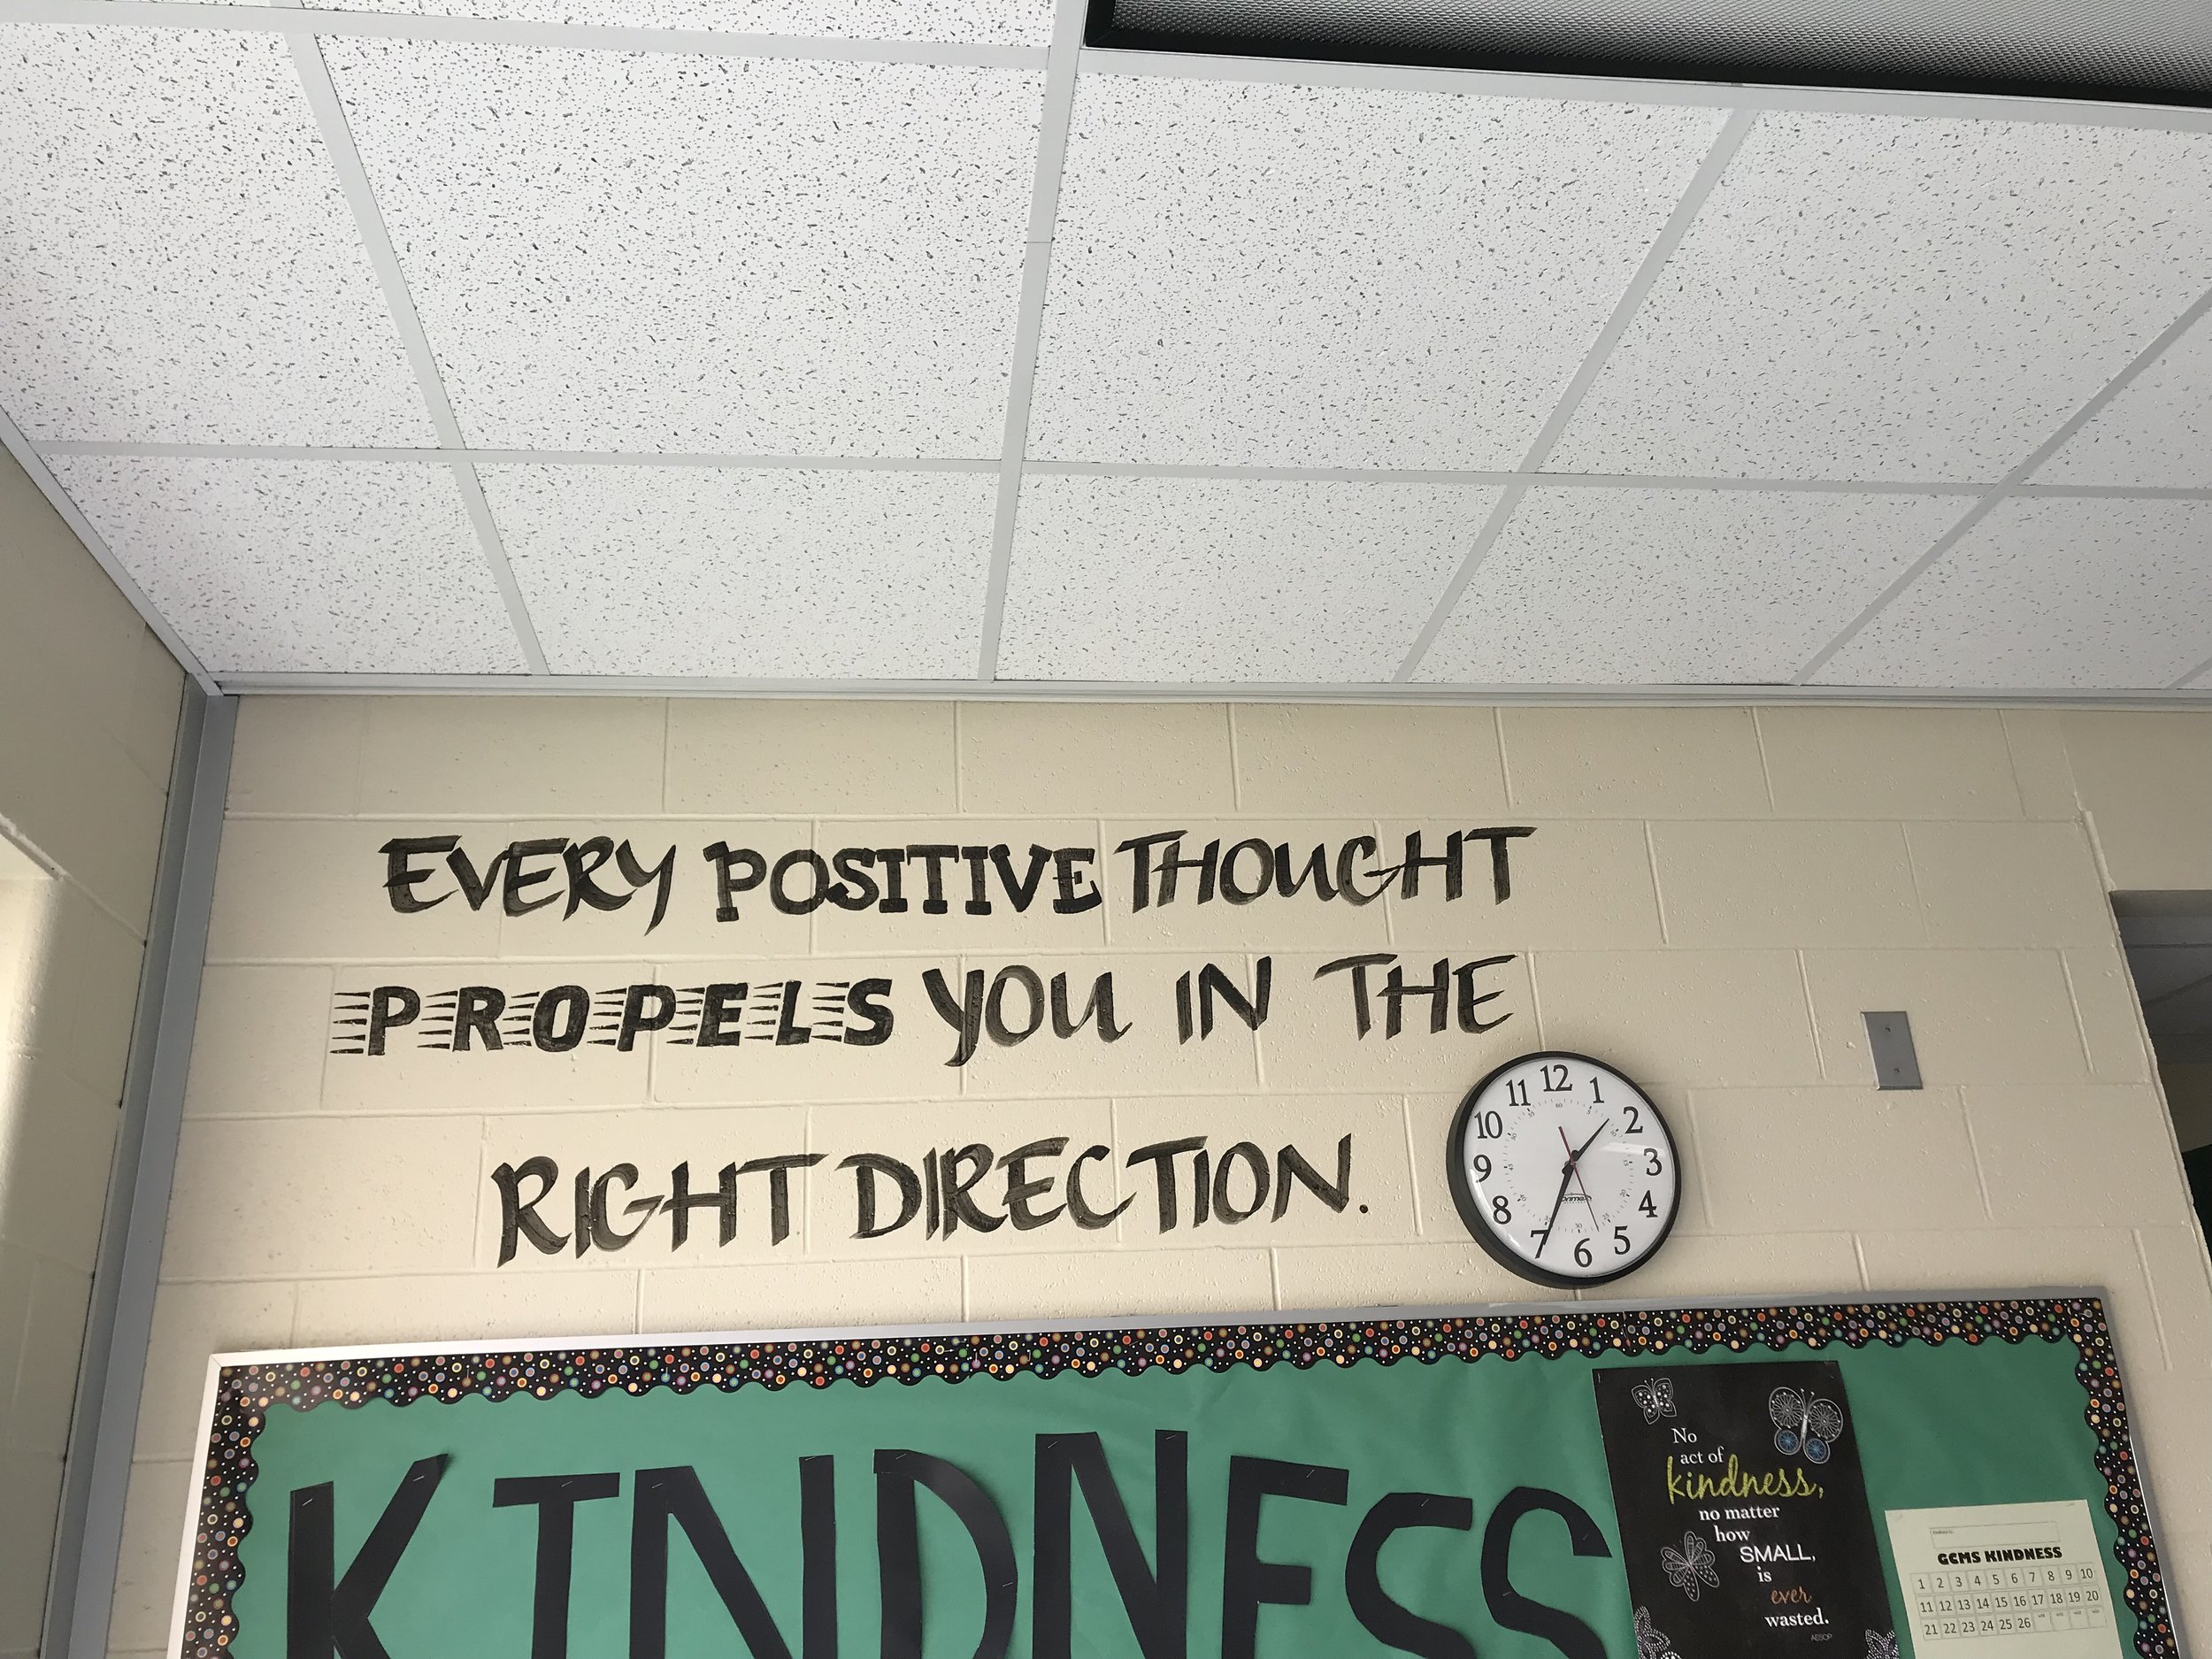 EVERY POSITIVE THOUGHT
PROPELS YOU IN THE
RIGHT DIRECTION.
11 12 1
10 2
9 3
8 4
7 6 5
KINDNESS
No
act of
kindness,
no matter
how
SMALL,
is
ever
wasted.
AESOP
GCMS KINDNESS
1 2 3 4 5 6 7 8 9 10
11 12 13 14 15 16 17 18 19 20
21 22 23 24 25 26